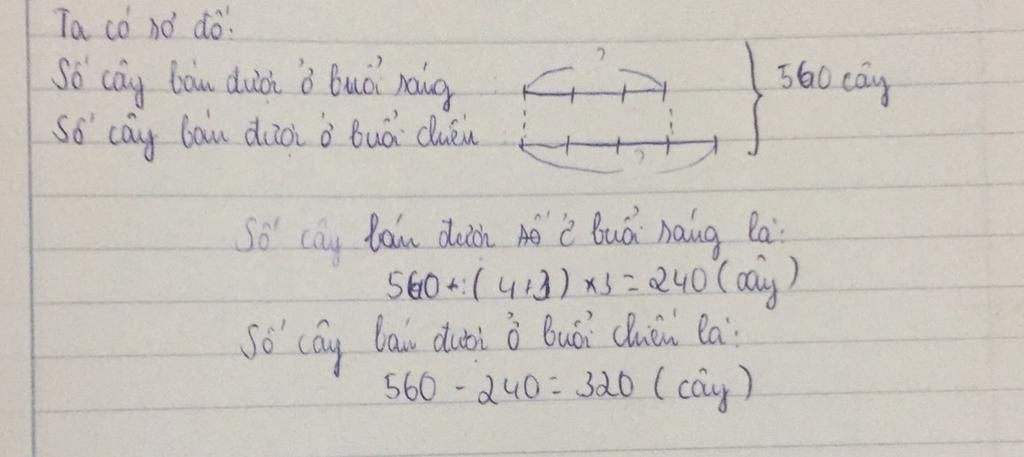 Ta có sơ đồ:
?
Số cây bán được ở buổi sáng
560 cây
Số cây bán được ở buổi chiều
?
Số cây bán được số ở buổi sáng là:
560 : (4+3) × 3 = 240 (cây)
Số cây bán được ở buổi chiều là:
560 - 240 = 320 (cây)